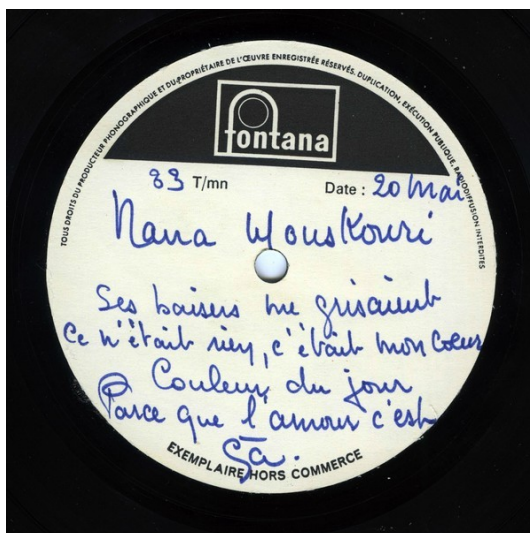 TOUS DROITS DU PRODUCTEUR PHONOGRAPHIQUE ET DU PROPRIÉTAIRE DE L'ŒUVRE ENREGISTRÉE RÉSERVÉS. DUPLICATION, EXÉCUTION PUBLIQUE, RADIODIFFUSION INTERDITES
fontana
33 T/mn Date : 20 Mai
Nana Mouskouri
Ses baisers me grisaient
Ce n'était rien, c'était mon coeur
Couleur du jour
Parce que l'amour c'est
ça.
EXEMPLAIRE HORS COMMERCE